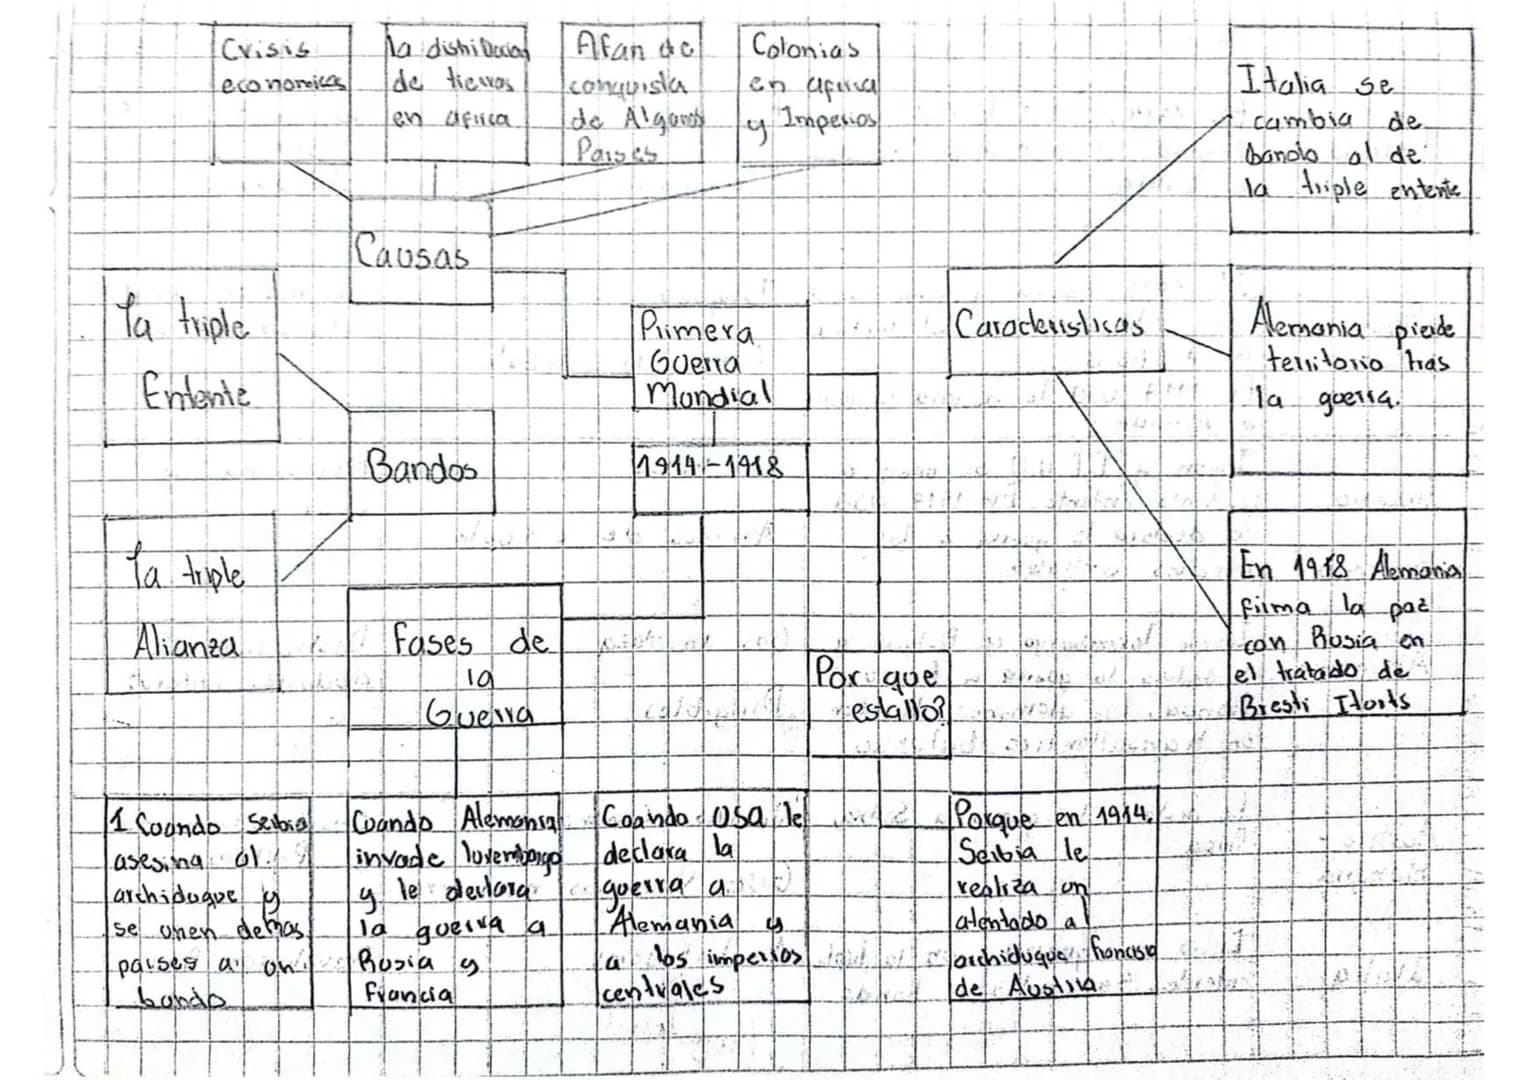 Crisis
economicas
la distribucion
de tierras
en africa
Afan de
conquista
de Algunos
Paises
Colonias
en africa
y Imperios
Italia se
cambia de
bando al de
la triple entente
Causas
La triple
Entente
Primera
Guerra
Mundial
Caracteristicas
Alemania pierde
territorio tras
la guerra.
Bandos
1914-1918
La triple
Alianza
Fases de
la
Guerra
Por que
estallo?
En 1918 Alemania
firma la paz
con Rusia en
el tratado de
Bresti
1 Cuando Serbia
asesina al
archiduque y
se unen demas
paises a un
bando
Cuando Alemania
invade luxemburgo
y le declara
la guerra a
Rusia y
Francia
Cuando Usa le
declara la
guerra a
Alemania y
a los imperios
centrales
Porque en 1914,
Serbia le
realiza un
atentado al
archiduque
de Austria